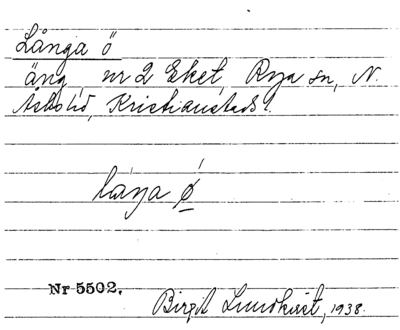 Långa ö
äng, nr 2 Eket, Rya sn, N.
Åsbo hd, Kristianstads l.
lánga ǿ
Nr 5502.
Birgit Lundkvist, 1938.